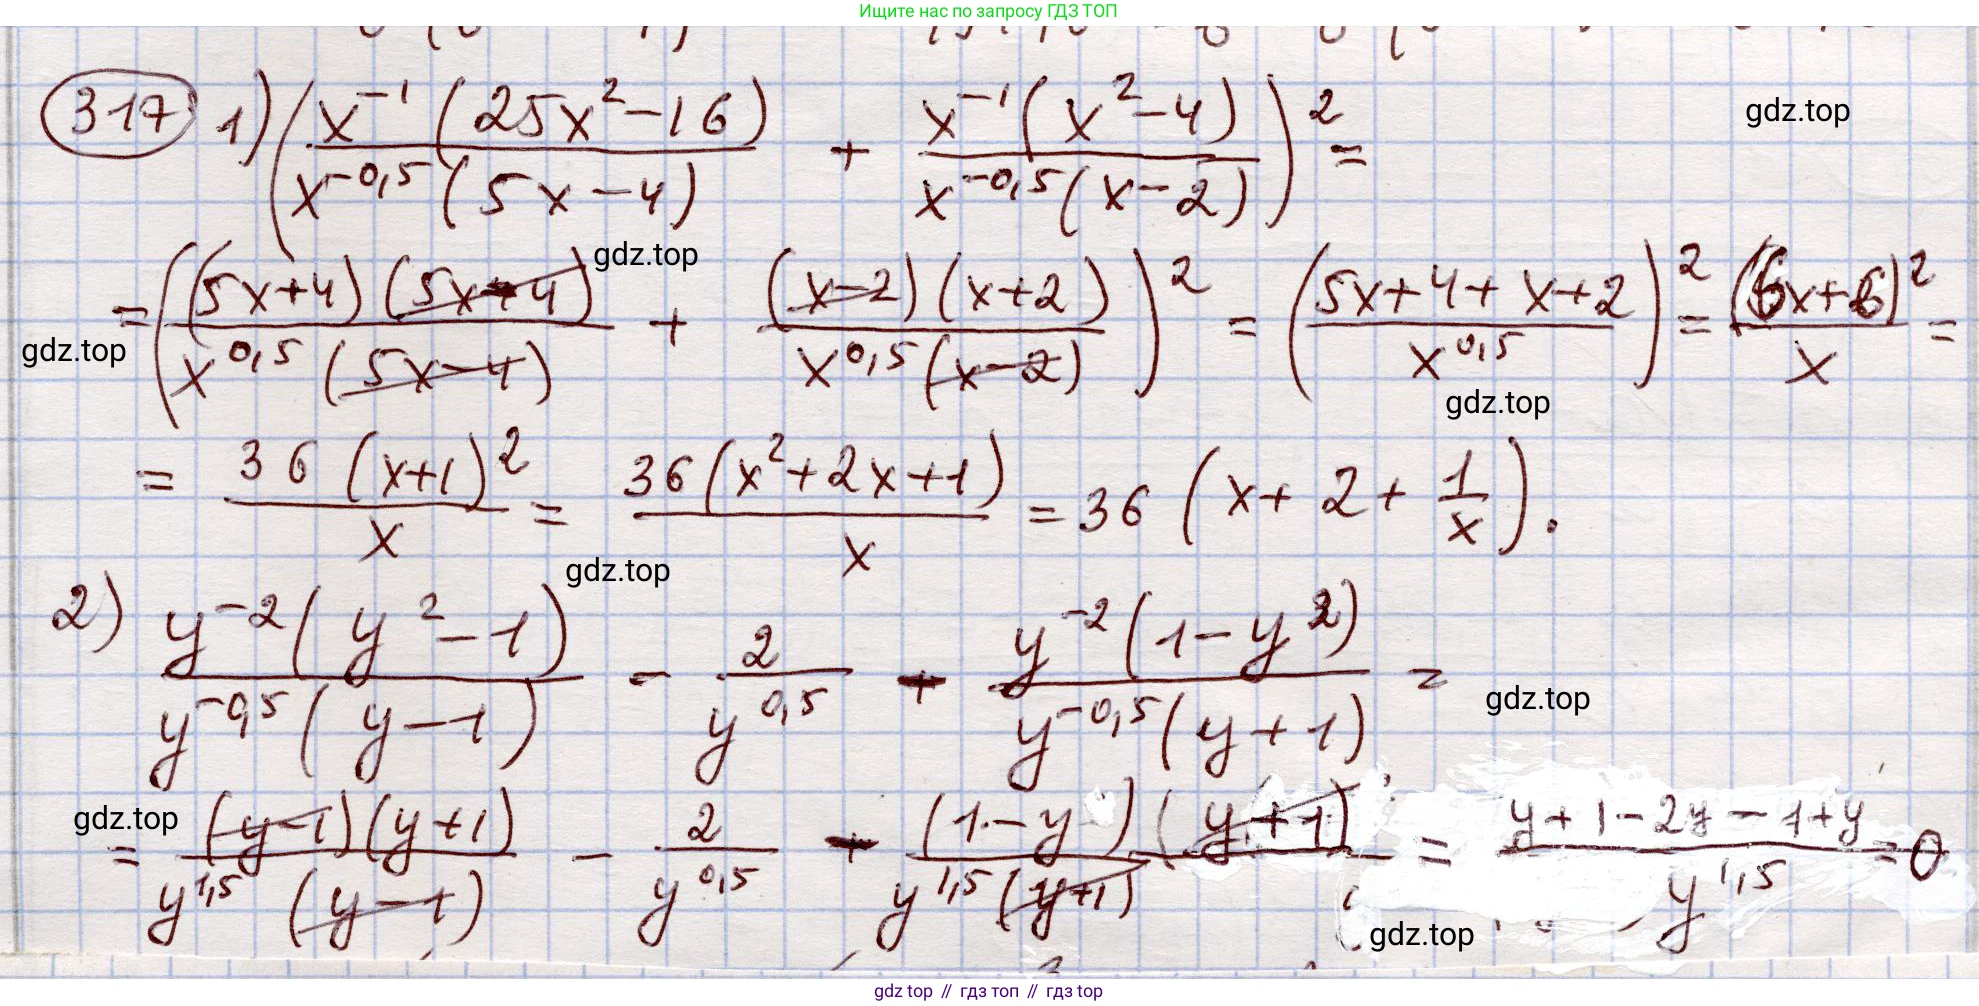 Ищите нас по запросу ГДЗ ТОП
317 1) (x^-1 (25x^2 - 16) / x^-0,5 (5x - 4) + x^-1 (x^2 - 4) / x^-0,5 (x - 2))^2 =
gdz.top
= ((5x+4)(5x-4) / x^0,5 (5x-4) + (x-2)(x+2) / x^0,5 (x-2))^2 = ((5x+4+x+2) / x^0,5)^2 = (6x+6)^2 / x =
gdz.top
gdz.top
gdz.top
= 36 (x+1)^2 / x = 36 (x^2+2x+1) / x = 36 (x + 2 + 1/x).
gdz.top
2) y^-2 (y^2 - 1) / y^-0,5 (y - 1) - 2 / y^0,5 + y^-2 (1 - y^2) / y^-0,5 (y + 1) =
gdz.top
gdz.top
= (y-1)(y+1) / y^1,5 (y-1) - 2 / y^0,5 + (1-y)(y+1) / y^1,5 (y+1) = y+1-2y-1+y / y^1,5 = 0
gdz.top
gdz top // гдз топ // гдз top